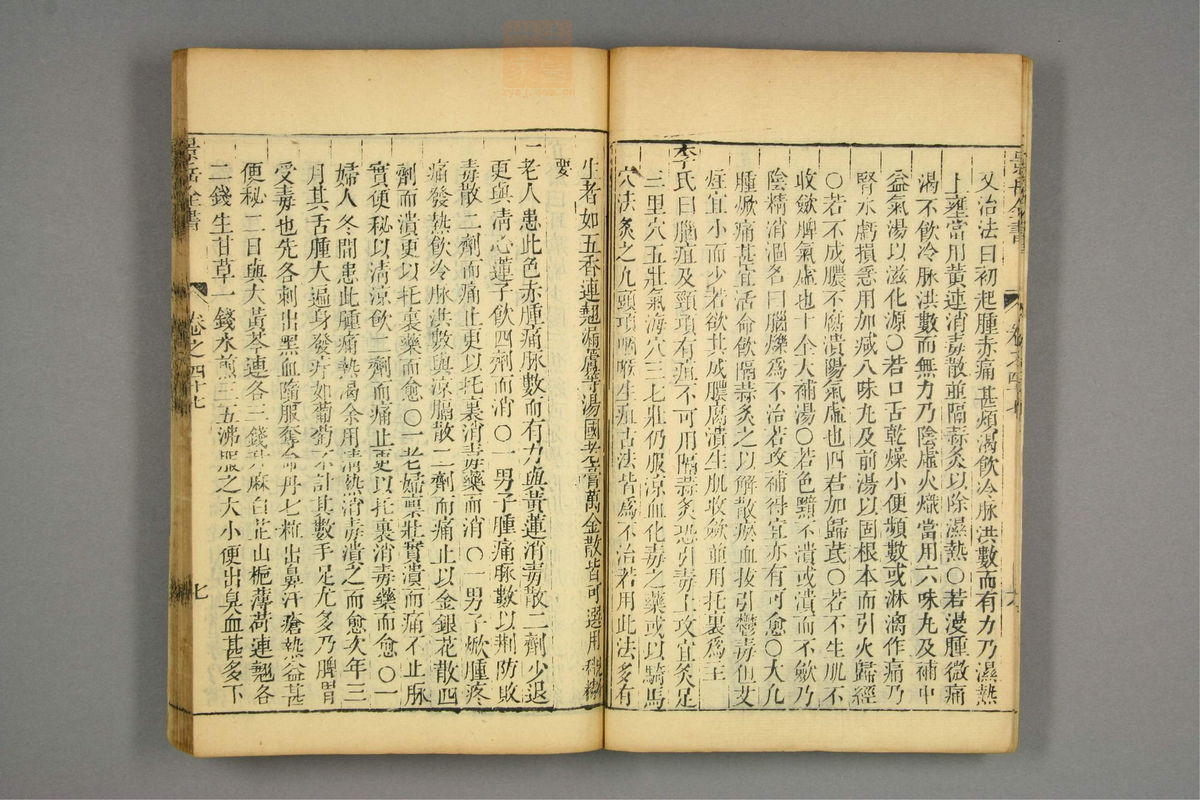 景岳全書
卷之四十七
六
又治法曰初起腫赤痛甚煩渴飲冷脉洪數而有力乃濕熱
上壅當用黃連消毒散並隔蒜灸以除濕熱〇若漫腫微痛
渴不飲冷脉洪數而無力乃陰虛火熾當用六味丸及補中
益氣湯以滋化源〇若口舌乾燥小便頻數或淋漓作痛乃
腎水虧損急用加減八味丸及前湯以固根本而引火歸經
〇若不成膿不腐潰陽氣虛也四君加歸芪〇若不生肌不
收斂脾氣虛也十全大補湯〇若色黯不潰或潰而不斂乃
陰精消涸名曰腦爍爲不治若攻補得宜亦有可愈〇大凡
腫焮痛甚宜活命飲隔蒜灸之以解散瘀血拔引鬱毒但艾
炷宜小而少若欲其成膿腐潰生肌收斂並用托裏爲主
李氏曰腦疽及頸項有疽不可用隔蒜灸恐引毒上攻宜灸足
三里穴五壯氣海穴三七壯仍服凉血化毒之藥或以騎馬
穴法灸之凡頭項咽喉生疽古法皆爲不治若用此法多有
生者如五香連翹漏蘆等湯國老膏萬金散皆可選用
要
一老人患此色赤腫痛脉數而有力與黃蓮消毒散二劑少退
更與清心蓮子飲四劑而消〇一男子腫痛脉數以荆防敗
毒散二劑而痛止更以托裏消毒藥而消〇一男子焮腫疼
痛發熱飲冷脉洪數與凉膈散二劑而痛止以金銀花散四
劑而潰更以托裏藥而愈〇一老婦禀壯實潰而痛不止脉
實便秘以清凉飲二劑而痛止更以托裏消毒藥而愈〇一
婦人冬間患此腫痛熱渴余用清熱消毒潰之而愈次年三
月其舌腫大遍身發疔如葡萄不計其數手足尤多乃脾胃
受毒也先各刺出黑血隨服奪命丹七粒出鼻汗瘡熱益甚
便秘二日與大黃芩連各三錢升麻白芷山梔薄荷連翹各
二錢生甘草一錢水煎三五沸服之大小便出臭血甚多下
景岳全書
卷之四十七
七